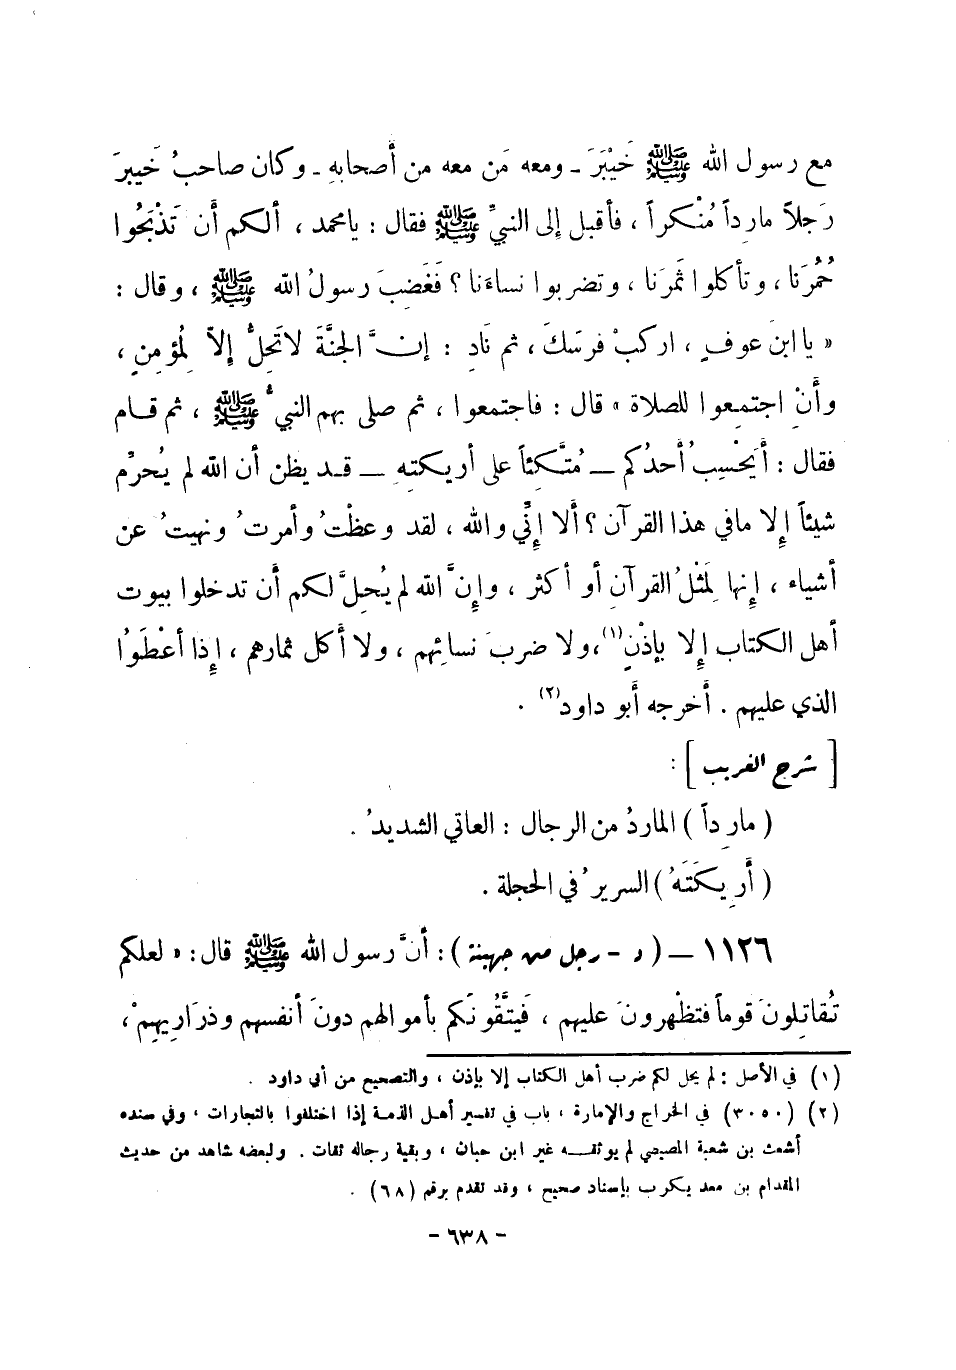 مع رسول الله ﷺ خَيْبَرَ ـ ومعه مَن معه من أصحابهِ ـ وكان صاحبُ خَيبرَ
رَجلاً مارِداً مُنْكراً ، فأقبل إلى النبيِّ ﷺ فقال : يا محمد ، ألكم أن تَذْبَحُوا
حُمُرَنا ، وتأكلوا ثَمرَنا ، وتضربوا نساءَنا ؟ فَغَضِبَ رسولُ الله ﷺ ، وقال :
« يا ابنَ عوفٍ ، اركبْ فرسَكَ ، ثم نَادِ : إنَّ الجنَّةَ لا تَحِلُّ إلاّ لِمُؤمِنٍ ،
وأنْ اجتمِعوا للصلاة » قال : فاجتمعوا ، ثم صلى بهم النبيُّ ﷺ ، ثم قام
فقال : أَيَحْسِبُ أحدُكم ــ مُتَّكئاً على أريكتهِ ــ قد يظن أن الله لم يُحرِّم
شيئاً إلا ما في هذا القرآن ؟ ألا إنِّي والله ، لقد وعظْتُ وأمرتُ ونهيتُ عن
أشياء ، إنها لَمِثْلُ القرآنِ أو أكثر ، وإنَّ الله لم يُحِلَّ لكم أن تدخلوا بيوت
أهل الكتاب إلا بإذْنٍ(١)،ولا ضربَ نسائِهم ، ولا أكل ثمارهم ، إذا أعْطَوْا
الذي عليهم . أخرجه أبو داود(٢) .
[ شرح الغريب ] :
( مارِداً ) الماردُ من الرجال : العاتي الشديدُ .
( أَرِيكَتَهُ ) السريرُ في الحجلة .
١١٢٦ ــ ( د - رجل من جهينة ) : أنَّ رسول الله ﷺ قال : « لعلكم
تُقاتِلونَ قوماً فتظْهرونَ عليهم ، فَيتَّقُونَكم بأموالهم دونَ أنفسهم وذرَارِيهمْ ،
(١) في الأصل : لم يحل لكم ضرب أهل الكتاب إلا بإذن ، والتصحيح من أبي داود .
(٢) (٣٠٥٠) في الخراج والإمارة ، باب في تفسير أهل الذمة إذا اختلفوا بالتجارات ، وفي سنده
أشعث بن شعبة المصيصي لم يوثقه غير ابن حبان ، وبقية رجاله ثقات . ولبعضه شاهد من حديث
المقدام بن معد يكرب بإسناد صحيح ، وقد تقدم برقم (٦٨) .
- ٦٣٨ -